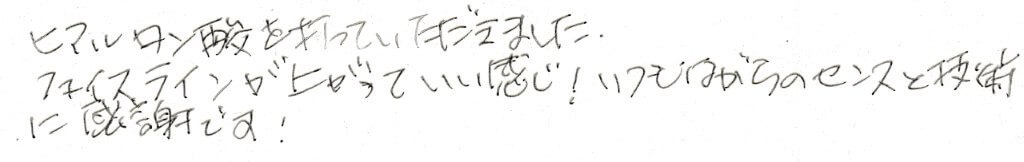 ヒアルロン酸を打っていただきました.
フェイスラインが上がっていい感じ!いつもながらのセンスと技術
に感謝です!